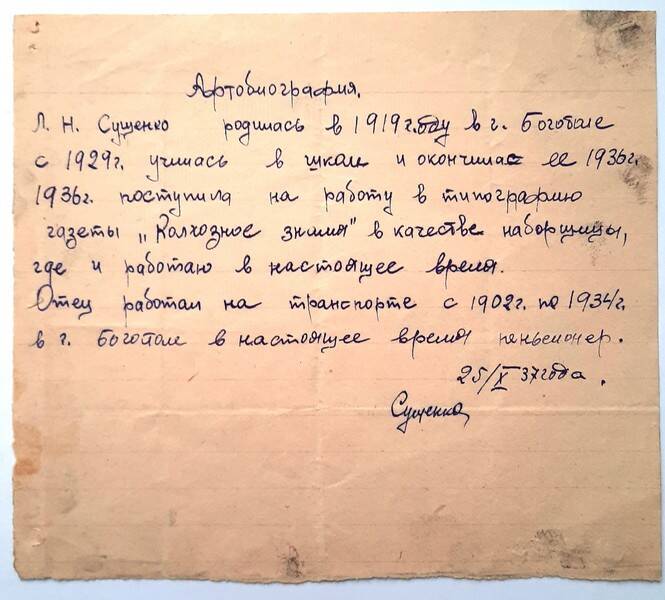 Артобиография.
Л. Н. Сущенко родилась в 1919г.оду в г. Боготоле
с 1929г. училась в школе и окончилас ее 1936г.
1936г. поступила на работу в типографию
газеты „Колхозное знамя" в качестве наборщицы,
где и работаю в настоящее время.
Отец работал на транспорте с 1902г. по 1934г.
в г. Боготоле в настоящее время пеньсионер.
25/X 37года.
Сущенко